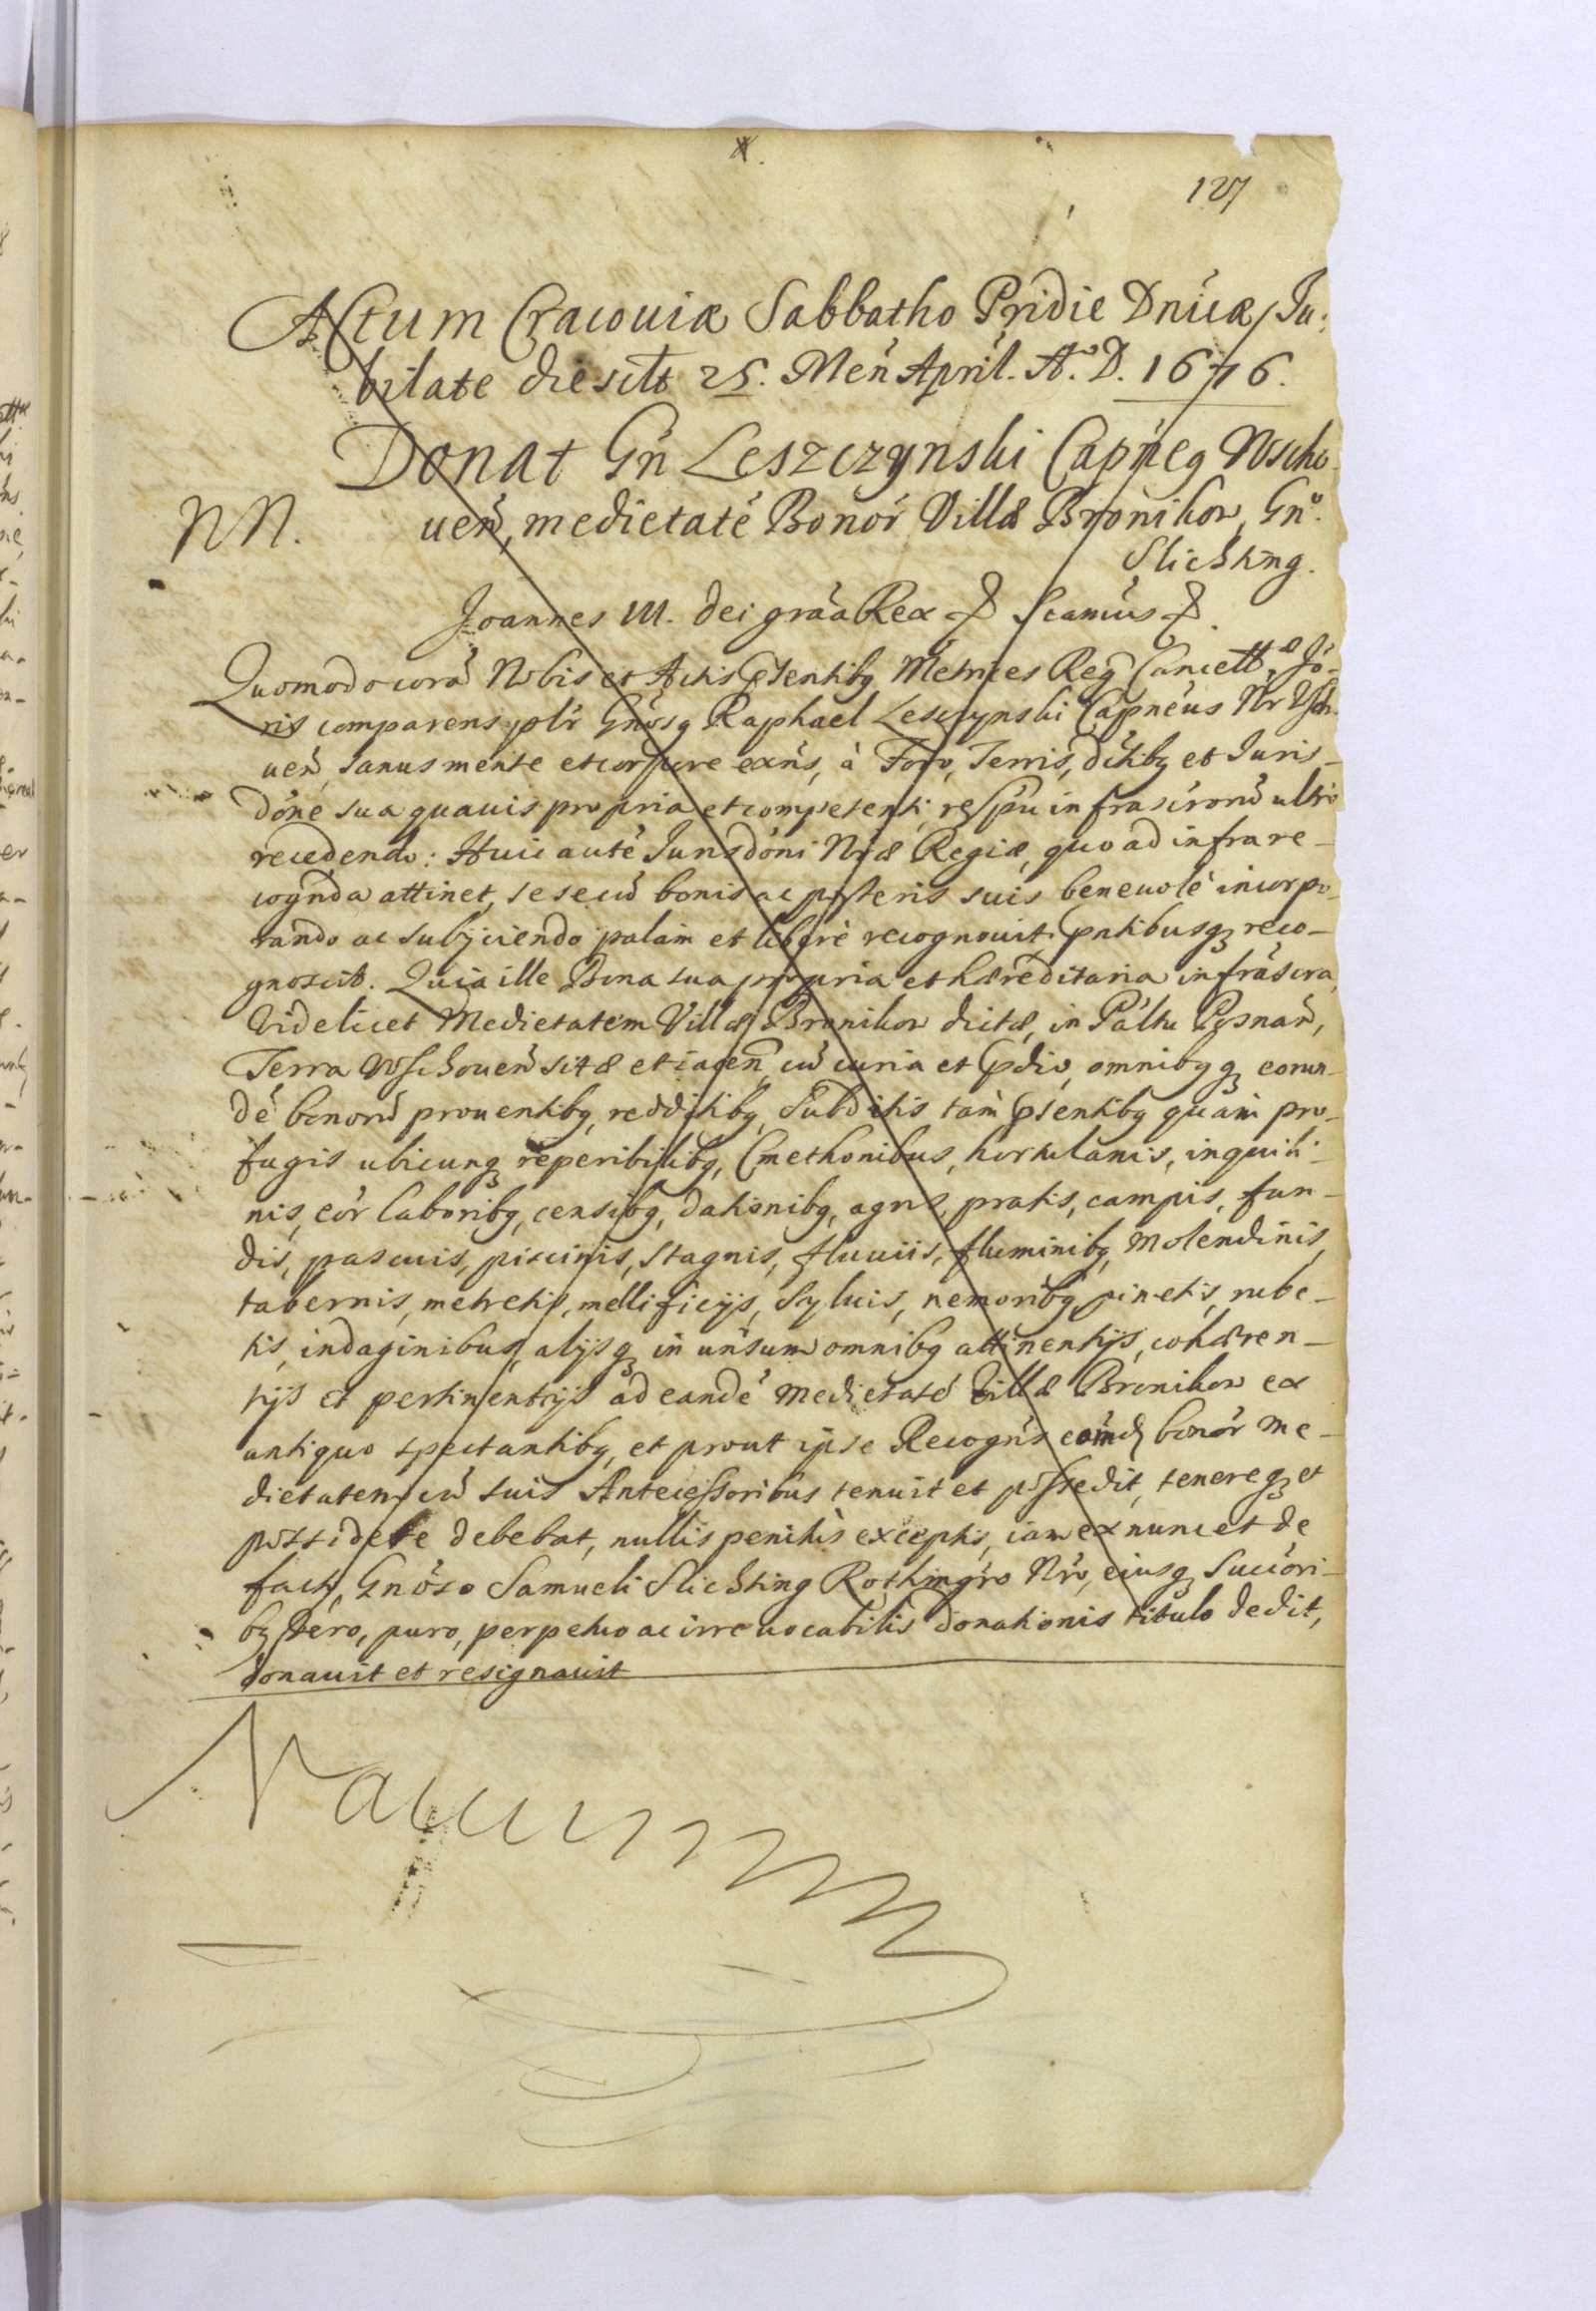 127
Actum Cracouiæ Sabbatho Pridie Dnicæ Ju-
bilate die scilt 25. Men April. Aº. D. 1676.
Donat Gn Leszczynski Capneq Wscho-
NN. uen, medietatē Bonor Villæ Bronikow, Gnº.
Slichting.
Joannes III. dei graa Rex & Scamus &.
Quomodo corā Nobis et Actis psentibq Metrices Reg Cancettæ Jo-
ris comparens pslr Gnosq Raphael Lesczynski Capneus Nr Vsch-
uen, sanus mente et corpore exns, à Foro, Terris, dctibq et Juris-
done sua quauis propria et competenti, respu infrascrorū ultro
recedendo: Huic autē Jurisdoni Nræ Regiæ, quo ad infra re-
cognda attinet, se se cū bonis ac posteris suis beneuolè incorpo-
rando ac subijciendo palam et liberè recognouit, pntibusq reco-
gnoscit. Quia ille Bona sua propria et hæreditaria infrascra,
Videlicet Medietatem Villæ Bronikow dictæ, in Paltu Posnan,
Terra Wschouen sitæ et iacen, cū curia et pdio, omnibq q eorun-
dē bonorū prouentibq, redditibq, Subditis tam psentibq quam pro-
fugis ubicunq reperibilibq, Cmethonibus, hortulanis, inquili-
nis, eor laboribq, censibq, dationibq, agris, pratis, campis, fun-
dis, pascuis, piscinis, stagnis, fluuiis, fluminibq, Molendinis,
tabernis, metretis, mellificijs, Syluis, nemoribq, pinetis, rube-
tis, indaginibus, alijsq in unsum omnibq attinentijs, cohæren-
tijs et pertinentijs ad eandē Medietatē Villæ Bronikow ex
antiquo spectantibq, et prout ipse Recogns eorūd bonor Me-
dietatem cū suis Antecessoribus tenuit et possedit, tenereq et
possidere debebat, nullis penitùs exceptis, iam ex nunc et de
facto, Gnoso Samueli Slichting Rothmgro Nro, eiusq Succori-
bq Vero, puro, perpetuo ac irreuocabilis donationis titulo dedit,
donauit et resignauit
Vacuum